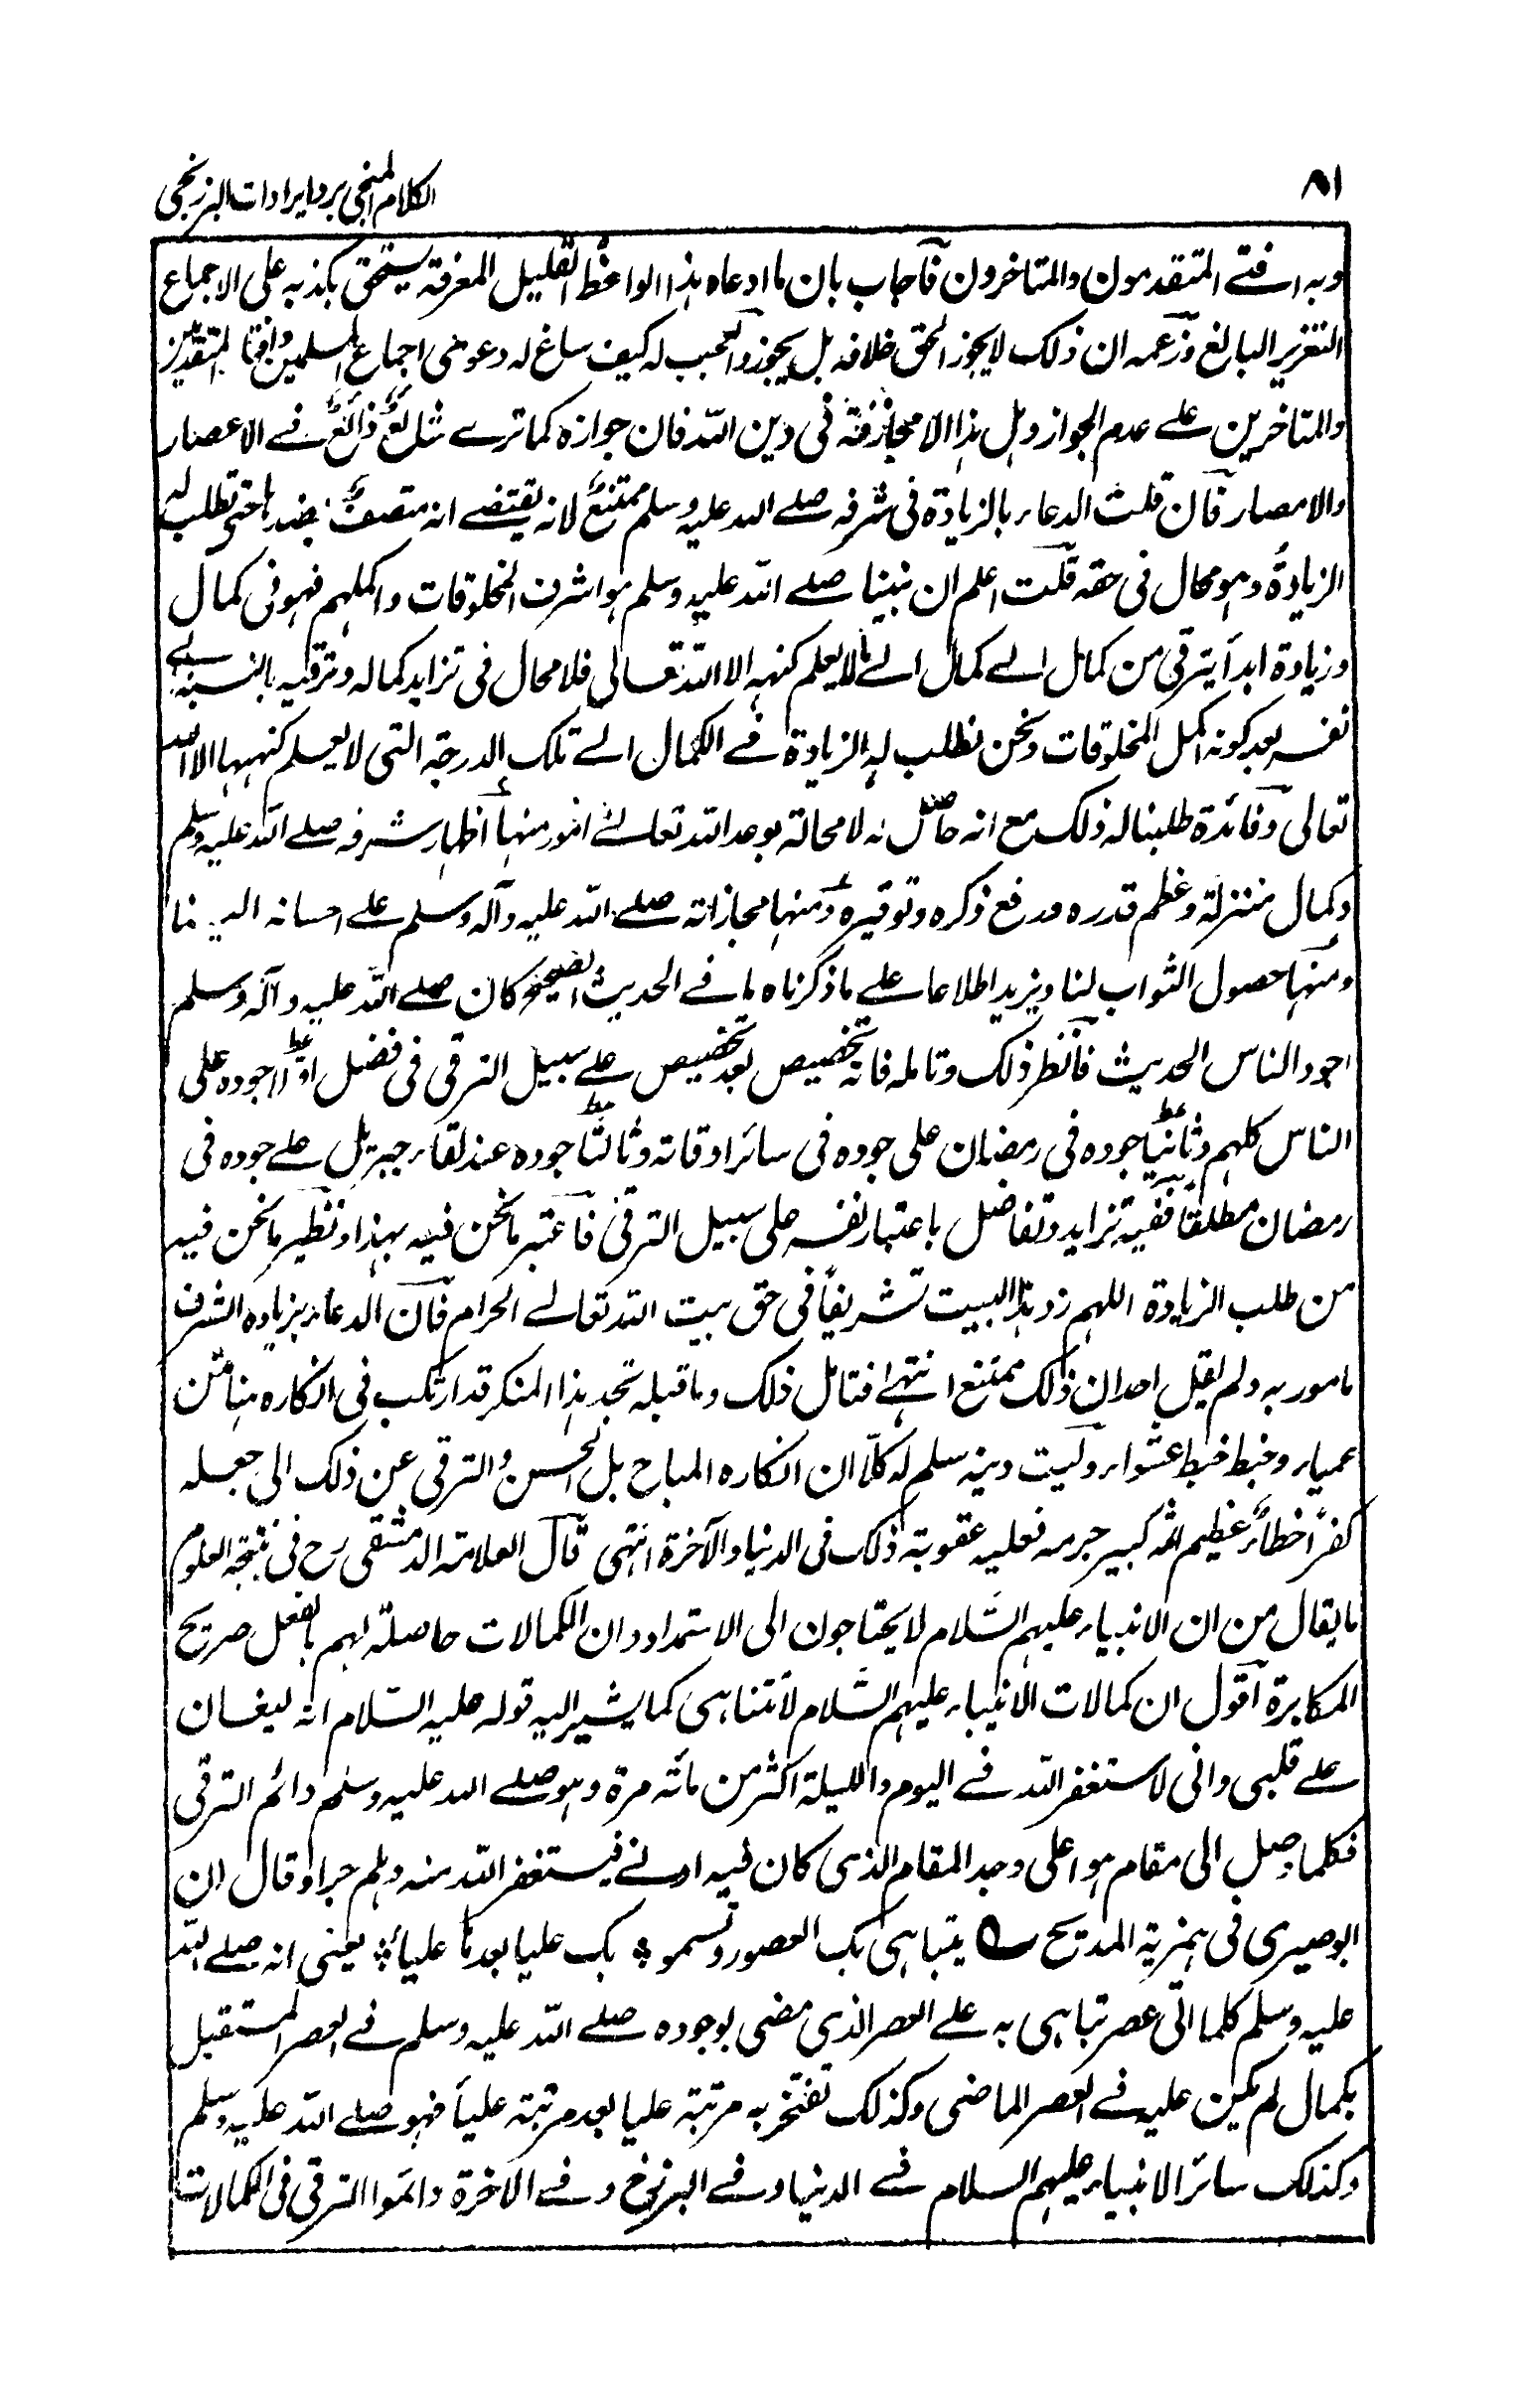 ٨١
الكلام المنجي برد ايرادات البرزنجي
وبه افتے المتقدمون والمتاخرون فآجاب بان ما ادعاه هذا الواعظ القليل المعرفة يستحق بكذبه على الاجماع
التعزير البالغ وزعمه ان ذلك لا يجوز الحق خلافه بل يجوز والعجب له كيف ساغ له دعوى اجماع المسلمين وافتاء المتقدمين
والمتاخرين علے عدم الجواز وهل هذا الا مجازفة في دين الله فان جوازه كما ترے شائع ذائع فے الاعصار
والامصار فان قلت الدعاء بالزيادة في شرفه صلے الله عليه وسلم ممتنع لانه يقتضے انه متصف بضدها حتى تطلب له
الزيادة وهو محال في حقه قلت اعلم ان نبينا صلے الله عليه وسلم هو اشرف المخلوقات واكملهم فهو في كمال
وزيادة ابدا يترقى من كمال الے كمال الے ما لا يعلم كنهه الا الله تعالى فلا محال في تزايد كماله وترقيه بالنسبة لے
نفسه بعد كونه اكمل المخلوقات ونحن نطلب له الزيادة فے الكمال الے تلك الدرجة التى لا يعلم كنهها الا الله
تعالى وفائدة طلبنا له ذلك مع انه حاصل له لا محالة بوعد الله تعالے امور منها اظهار شرفه صلے الله عليه وسلم
وكمال منزلة وعظم قدره ورفع ذكره وتوقيره ومنها مجازاته صلے الله عليه وآله وسلم علے احسانه الينا
ومنها حصول الثواب لنا ويزيد اطلاعا علے ما ذكرناه ما فے الحديث الصحيح كان صلے الله عليه وآله وسلم
اجود الناس الحديث فانظر ذلك وتامله فانه تخصيص بعد تخصيص علے سبيل الترقى في فضل اولا جوده على
الناس كلهم وثانيا جوده في رمضان على جوده في سائر اوقاته وثالثا جوده عند لقاء جبريل علے جوده في
رمضان مطلقا ففيه تزايد وتفاضل باعتبار نفسه على سبيل الترقى فاعتبر ما نحن فيه بهذا ونظير ما نحن فيه
من طلب الزيادة اللهم زد هذا البيت تشريفا في حق بيت الله تعالے الحرام فان الدعاء بزياده الشرف
مامور به ولم يقل احد ان ذلك ممتنع انتهے فتامل ذلك وما قبله تجد هذا المنكر قد ارتكب في انكاره هنا متن
عمياء وخبط خبط عشواء وليت دينه سلم له كلا ان انكاره المباح بل الحسن والترقى عن ذلك الى جعله
كفرا خطأ عظيم لله كبير جرمه فعليه عقوبة ذلك في الدنيا والآخرة انتهى قال العلامة الدمشقى رح في نتيجة العلوم
ما يقال من ان الانبياء عليهم السلام لا يحتاجون الى الاستمداد وان الكمالات حاصلة لهم بالفعل صريح
المكابرة اقول ان كمالات الانبياء عليهم السلام لا تتناهى كما يشير اليه قوله عليه السلام انه ليغان
علے قلبى وانى لاستغفر الله فے اليوم والليلة اكثر من مائة مرة وهو صلے الله عليه وسلم دائم الترقى
فكلما وصل الى مقام هو اعلى وجد المقام الذى كان فيه ادنے فيستغفر الله منه وهلم جرا وقال ان
البوصيرى في همزية المديح ؎ يتباهى بك العصور وتسمو ؛ بك عليا بعدها علياء ؛ يعنى انه صلے الله
عليه وسلم كلما اتى عصر تباهى به علے العصر الذى مضى بوجوده صلے الله عليه وسلم فے العصر المستقبل
بكمال لم يكن عليه فے العصر الماضى وكذلك تفتخر به مرتبة عليا بعد مرتبة عليا فهو صلے الله عليه وسلم
وكذلك سائر الانبياء عليهم السلام فے الدنيا وفے البرزخ وفے الاخرة دائموا الترقى في الكمالات